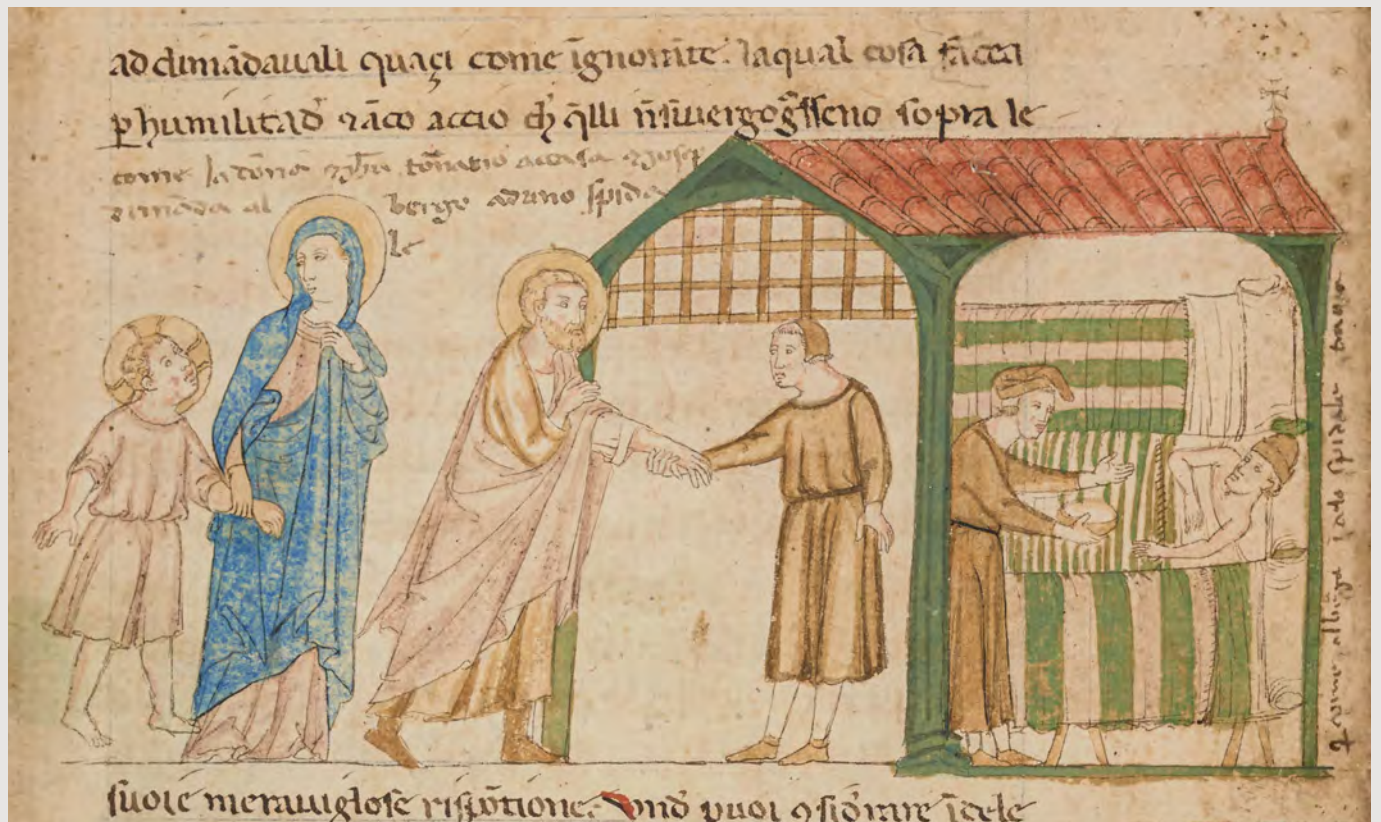 addimādavali quaçi come īgnorāte. laqual cosa facea
p humilitad ⁊ āco accio ch q̄lli nō sivergog̃sseno sopra le
come la dōna ⁊ yhū tornano a casa ⁊ yosep
dimāda al bergo ad uno spida
le
⁊ come albega i ato spidale
suoie meraviglose rispōtione. Und puoi ɔsid'rare ī cele